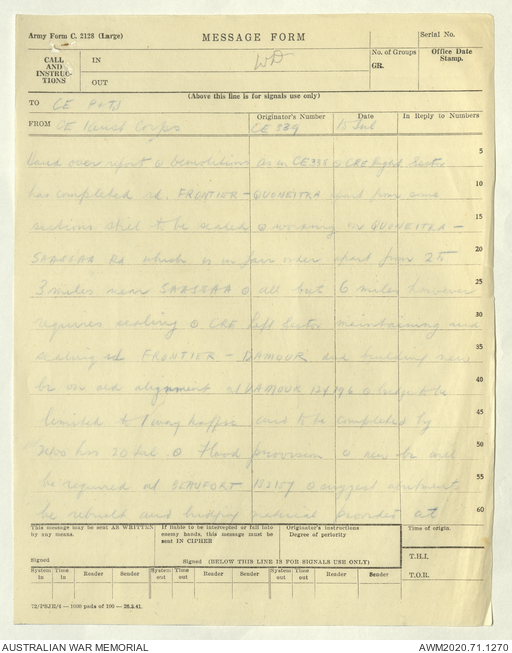 Army Form C. 2128 (Large)
MESSAGE FORM
Serial No.
CALL AND INSTRUCTIONS
IN
OUT
No. of Groups
GR.
Office Date Stamp.
(Above this line is for signals use only)
TO CE
Originator's Number
Date
In Reply to Numbers
FROM CE Aust Corps
CE 339
10 Jul
5
over report o demolitions as in CE 336 o CRE Right Sector
10
has completed rd. FRONTIER – QUONEITRA apart from some
15
sections still to be sealed o working on QUONEITRA –
20
SAASAA Rd which is in fair order apart from 25
25
3 miles near SAASAA o all but 6 miles however
30
requires sealing o CRE Left Sector maintaining and
35
sealing rd FRONTIER – DAMOUR and building new
40
br on old alignment at DAMOUR 124196 o bridge to be
45
limited to 1 way traffic and to be completed by
50
hrs 20 Jul o flood provision o new br will
55
be required at BEAUFORT o suggest abutments
60
be rebuilt and bridging material provided at
This message may be sent AS WRITTEN by any means.
If liable to be intercepted or fall into enemy hands, this message must be sent IN CIPHER
Originator's instructions
Degree of periority
Time of origin.
Signed
Signed (BELOW THIS LINE IS FOR SIGNALS USE ONLY)
T.H.I.
System in
Time in
Reader
Sender
System out
Time out
Reader
Sender
System out
Time out
Reader
Sender
T.O.R.
AUSTRALIAN WAR MEMORIAL
AWM2020.71.1270